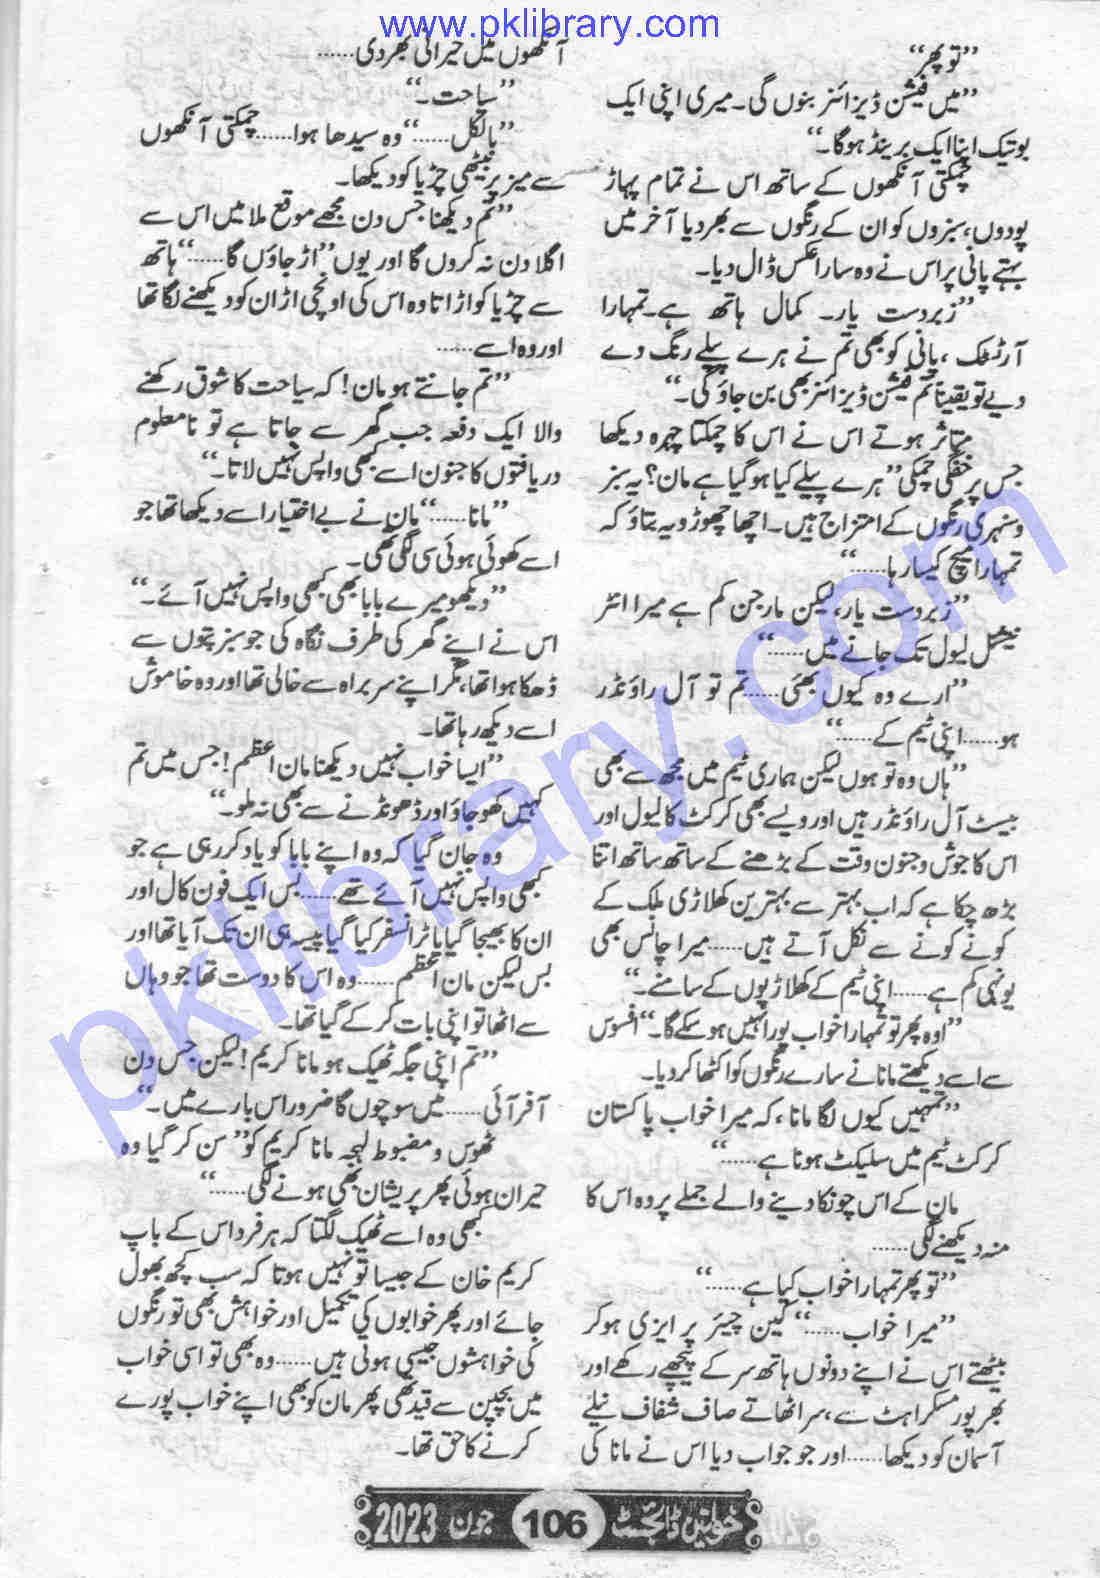 www.pklibrary.com
”تو پھر“
”میں فیشن ڈیزائنر بنوں گی۔ میری اپنی ایک
بوتیک اپنا ایک برینڈ ہوگا۔“
چمکتی آنکھوں کے ساتھ اس نے تمام پہاڑ
پودوں، سبزوں کو ان کے رنگوں سے بھر دیا آخر میں
بہتے پانی پر اس نے وہ سارا عکس ڈال دیا۔
”زبردست یار۔ کمال ہاتھ ہے۔ تمہارا
آرٹسٹک، پانی کو بھی تم نے ہرے پیلے رنگ دے
دیے تو یقیناً تم فیشن ڈیزائنر بھی بن جاؤ گی۔“
متاثر ہوتے اس نے اس کا چمکتا چہرہ دیکھا
جس پر خفگی چمکی ”ہرے پیلے کیا ہو گیا ہے مان؟ یہ سبز
و سنہری رنگوں کے امتزاج ہیں۔ اچھا چھوڑو یہ بتاؤ کہ
تمہارا میچ کیسا رہا......“
”زبردست یار، لیکن مارجن کم ہے میرا انٹر
نیشنل لیول تک جانے میں......“
”ارے وہ کیوں بھئی...... تم تو آل راؤنڈر
ہو...... اپنی ٹیم کے......“
”ہاں وہ تو ہوں لیکن ہماری ٹیم میں مجھ سے بھی
بیسٹ آل راؤنڈر ہیں اور ویسے بھی کرکٹ کا لیول اور
اس کا جوش و جنون وقت کے بڑھنے کے ساتھ ساتھ اتنا
بڑھ چکا ہے کہ اب بہتر سے بہترین کھلاڑی ملک کے
کونے کونے سے نکل آتے ہیں...... میرا چانس بھی
یونہی کم ہے...... اپنی ٹیم کے کھلاڑیوں کے سامنے۔“
”اوہ پھر تو تمہارا خواب پورا نہیں ہو سکے گا۔“ افسوس
سے اسے دیکھتے مانا نے سارے رنگوں کو اکٹھا کر دیا۔
”تمہیں کیوں لگا مانا، کہ میرا خواب پاکستان
کرکٹ ٹیم میں سلیکٹ ہونا ہے......“
مان کے اس چونکا دینے والے جملے پر وہ اس کا
منہ دیکھنے لگی......
”تو پھر تمہارا خواب کیا ہے......“
”میرا خواب......“ کین چیئر پر ایزی ہو کر
بیٹھتے اس نے اپنے دونوں ہاتھ سر کے پیچھے رکھے اور
بھرپور مسکراہٹ سے، سر اٹھاتے صاف شفاف نیلے
آسمان کو دیکھا...... اور جو جواب دیا اس نے مانا کی
آنکھوں میں حیرانی بھر دی......
”سیاحت۔“
”بالکل......“ وہ سیدھا ہوا...... چمکتی آنکھوں
سے میز پر بیٹھی چڑیا کو دیکھا۔
”تم دیکھنا جس دن مجھے موقع ملا میں اس سے
اگلا دن نہ کروں گا اور یوں“ اڑ جاؤں گا......“ ہاتھ
سے چڑیا کو اڑاتا وہ اس کی اونچی اڑان کو دیکھنے لگا تھا
اور وہ اسے......
”تم جانتے ہو مان! کہ سیاحت کا شوق رکھنے
والا ایک دفعہ جب گھر سے جاتا ہے تو نامعلوم
دریافتوں کا جنون اسے کبھی واپس نہیں لاتا۔“
”مانا......“ مان نے بے اختیار اسے دیکھا تھا جو
اسے کھوئی ہوئی سی لگی تھی۔
”دیکھو میرے بابا بھی کبھی واپس نہیں آئے۔“
اس نے اپنے گھر کی طرف نگاہ کی جو سبز پتوں سے
ڈھکا ہوا تھا، مگر اپنے سربراہ سے خالی تھا اور وہ خاموش
اسے دیکھ رہا تھا۔
”ایسا خواب نہیں دیکھنا مان اعظم! جس میں تم
کہیں کھو جاؤ اور ڈھونڈنے سے بھی نہ ملو۔“
وہ جان گیا کہ وہ اپنے بابا کو یاد کر رہی ہے جو
کبھی واپس نہیں آئے تھے...... بس ایک فون کال اور
ان کا بھیجا گیا یا ٹرانسفر کیا گیا پیسہ ہی ان تک آیا تھا اور
بس لیکن مان اعظم...... وہ اس کا دوست تھا جو وہاں
سے اٹھا تو اپنی بات کر کے گیا تھا۔
”تم اپنی جگہ ٹھیک ہو مانا کریم! لیکن جس دن
آفر آئی...... میں سوچوں گا ضرور اس بارے میں۔“
ٹھوس و مضبوط لہجہ مانا کریم کو ”سن کر گیا وہ
حیران ہوئی پھر پریشان بھی ہونے لگی......“
کبھی وہ اسے ٹھیک لگتا کہ ہر فرد اس کے باپ
کریم خان کے جیسا تو نہیں ہوتا کہ سب کچھ بھول
جائے اور پھر خوابوں کی تکمیل اور خواہش بھی تو رنگوں
کی خواہشوں جیسی ہوتی ہیں...... وہ بھی تو اسی خواب
میں بچپن سے قید تھی پھر مان کو بھی اپنے خواب پورے
کرنے کا حق تھا۔
خواتین ڈائجسٹ 106 جون 2023
pklibrary.com